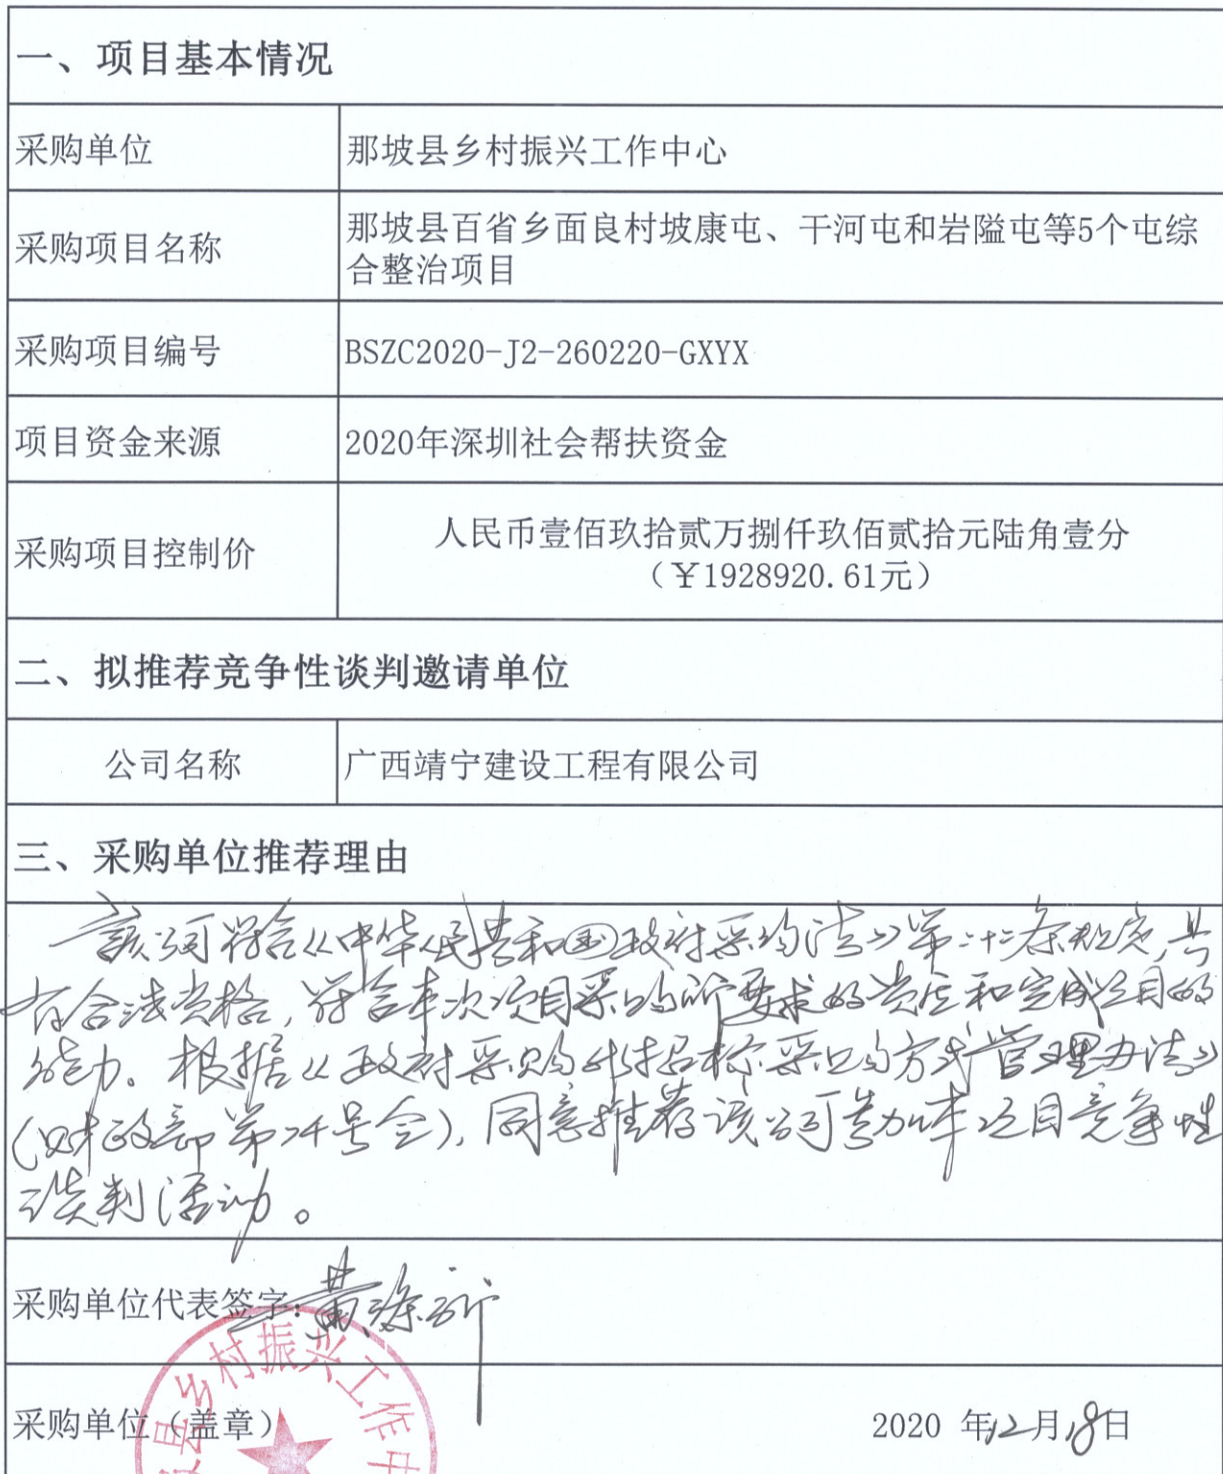 一、项目基本情况
采购单位
那坡县乡村振兴工作中心
采购项目名称
那坡县百省乡面良村坡康屯、干河屯和岩隘屯等5个屯综
合整治项目
采购项目编号
BSZC2020-J2-260220-GXYX
项目资金来源
2020年深圳社会帮扶资金
采购项目控制价
人民币壹佰玖拾贰万捌仟玖佰贰拾元陆角壹分
（￥1928920.61元）
二、拟推荐竞争性谈判邀请单位
公司名称
广西靖宁建设工程有限公司
三、采购单位推荐理由
该公司符合《中华人民共和国政府采购法》第二十二条规定,具
有合法资格,符合本次项目采购所要求的资质和完成项目的
能力。根据《政府采购非招标采购方式管理办法》
(财政部第74号令),同意推荐该公司参加本项目竞争性
谈判活动。
采购单位代表签字:黄
采购单位（盖章）
2020 年12月18日
县乡村振兴工作中